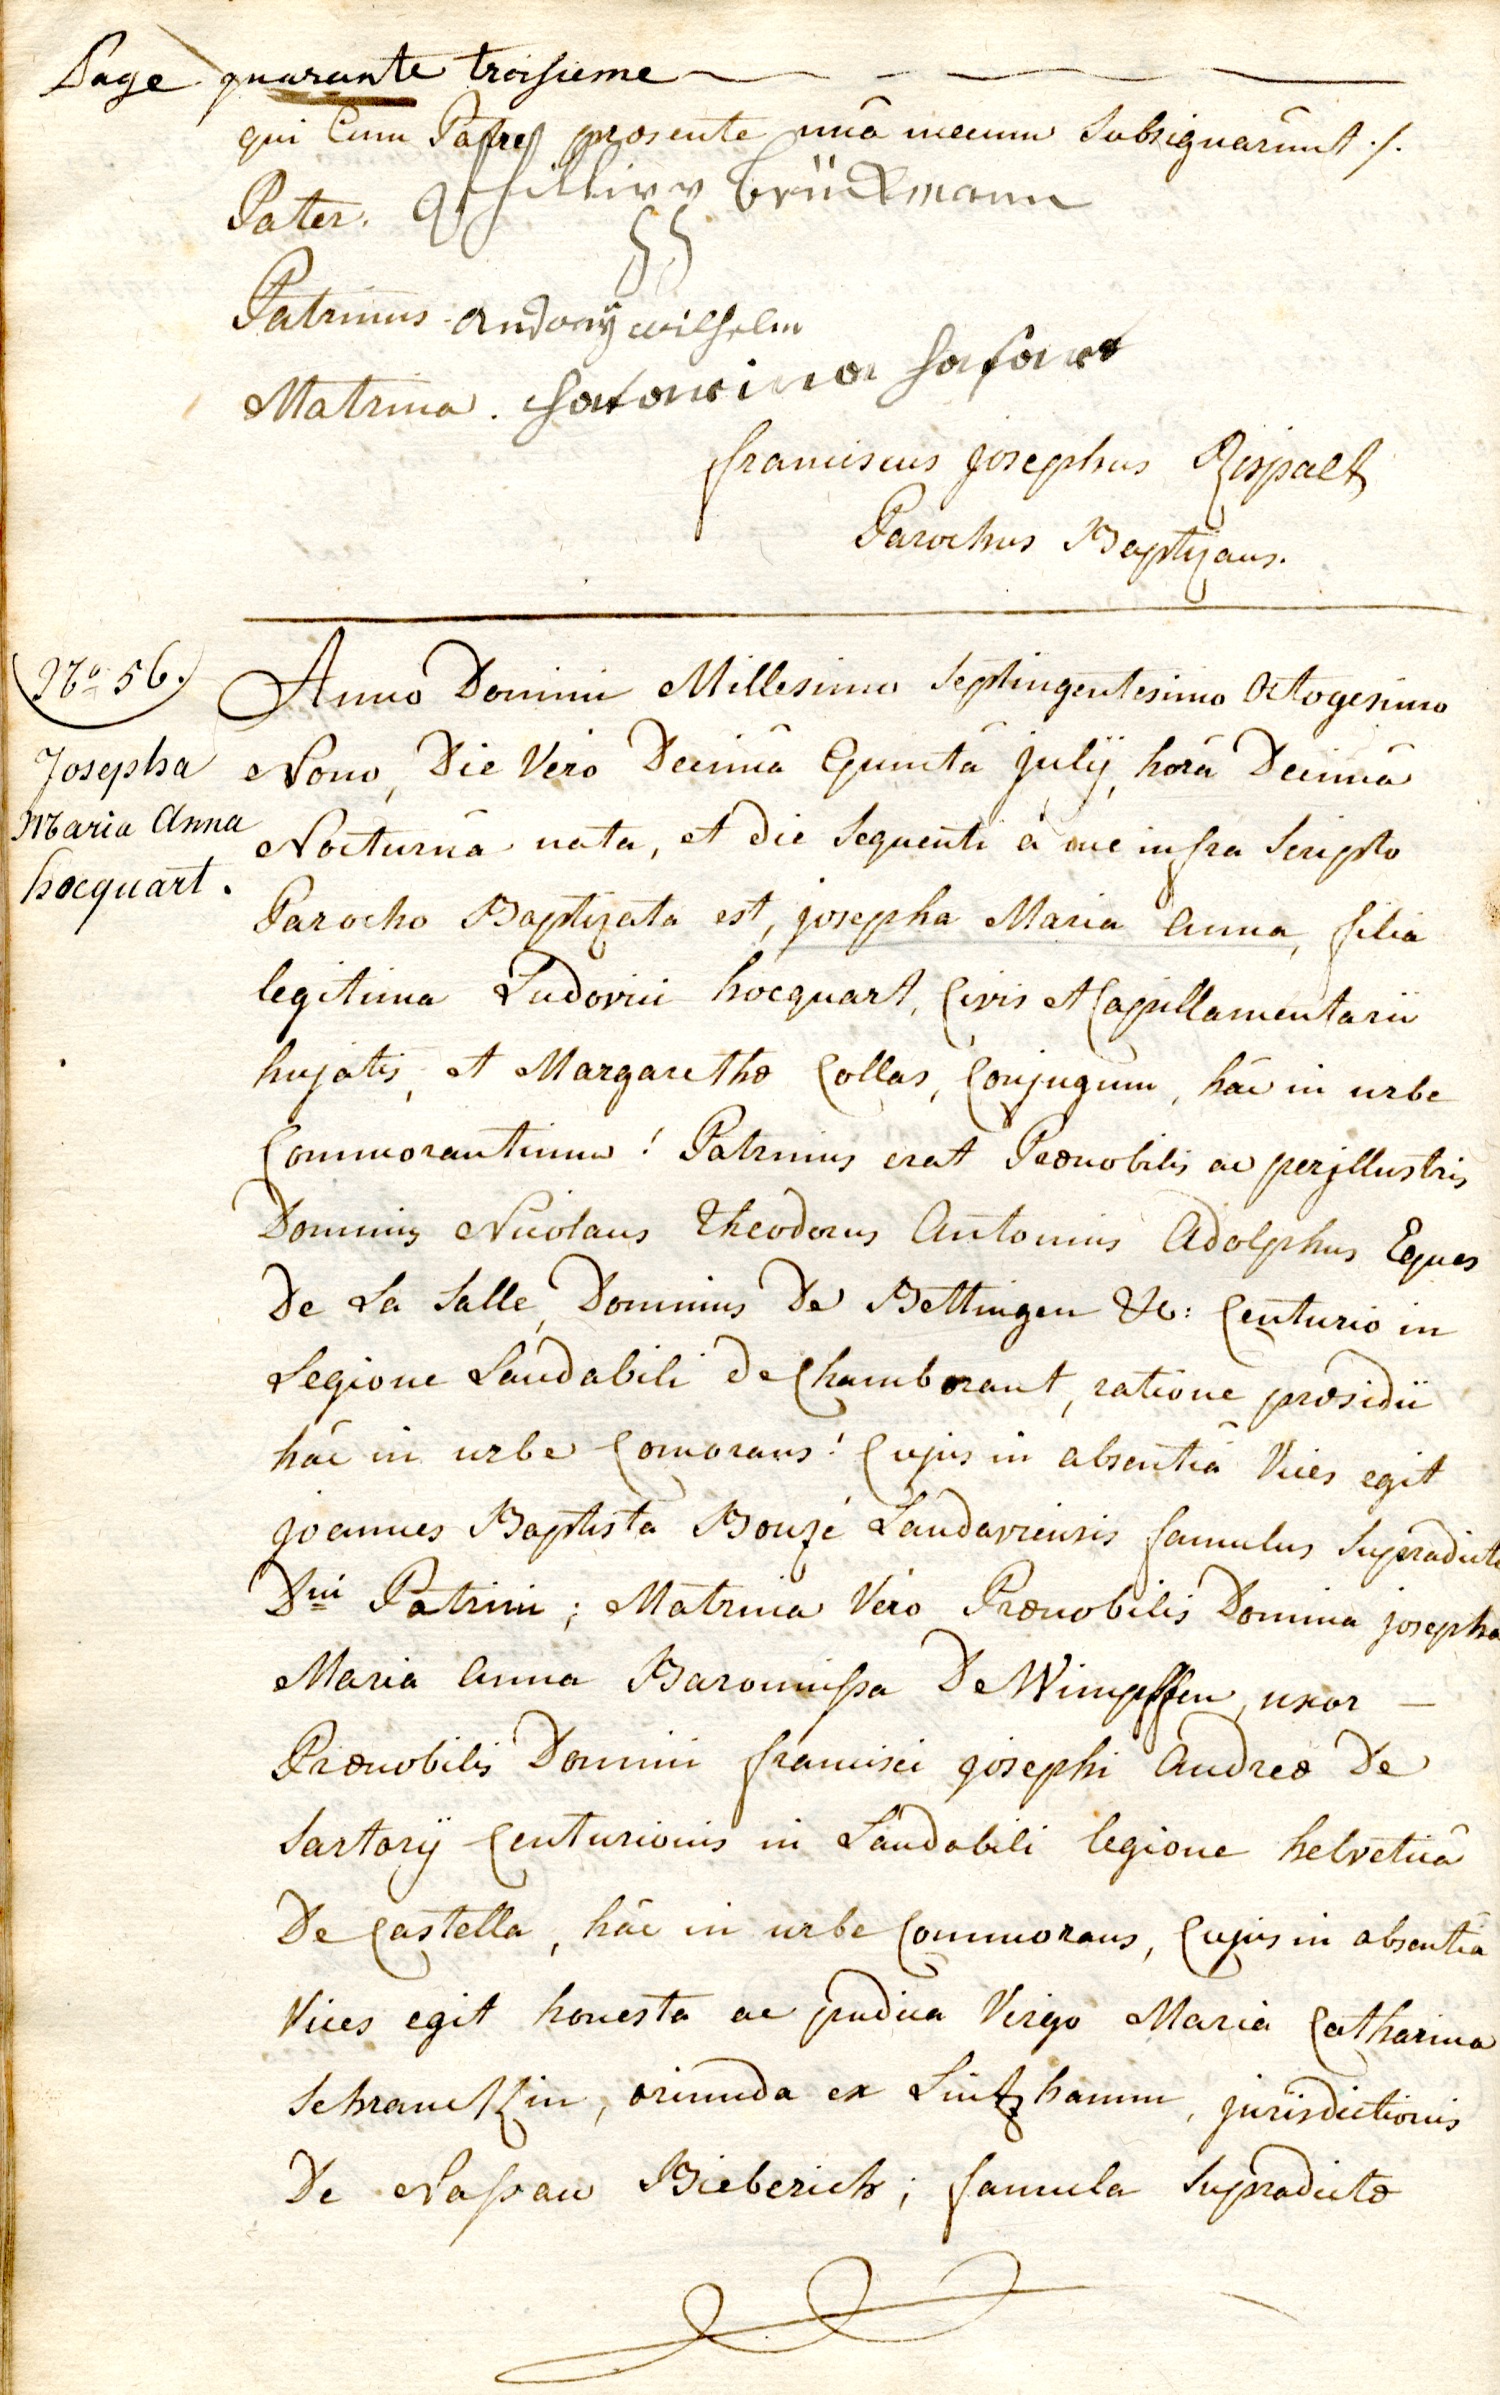 Page quarante troisieme
qui Cum Patre præsente unâ mecum Subsignarunt ./.
Pater. Philipp Brückmann
Patrinus Andony wilhelm
Matrina.
franciscus josephus Rispalt
Parochus Baptizans.
No 56.
Josepha
Maria Anna
hocquart.
Anno Domini Millesimo Septingentesimo Octogesimo
Nono, Die Vero Decimâ Quintâ julij, horâ Decimâ
Nocturnâ nata, et die Sequenti à me infra Scripto
Parocho Baptizata est, josepha Maria Anna, filia
legitima Ludovici hocquart, Civis et Capillamentarii
hujatis, et Margarethæ Collas, Conjugum, hâc in urbe
Commorantium! Patrinus erat Prænobilis ac perjllustris
Dominus Nicolaus Theodorus Antonius Adolphus Eques
De La Salle, Dominus De Bettingen &c: Centurio in
Legione Laudabili de Chamborant, ratione præsidii
hâc in urbe Comorans! Cujus in absentiâ Vices egit
joannes Baptista Bouzé Landaviensis famulus Supradicti
Dni Patrini; Matrina Vero Prænobilis Domina josepha
Maria Anna Baronissa De Wimpffen, uxor —
Prænobilis Domini francisci josephi Andreæ De
Sartorij Centurionis in Laudabili legione helveticâ
De Castella, hâc in urbe Commorans, Cujus in absentiâ
Vices egit honesta ac pudica Virgo Maria Catharina
Schranckin, oriunda ex Lintzhamm, jurisdictionis
De Nassau Bieberich; famula Supradictæ